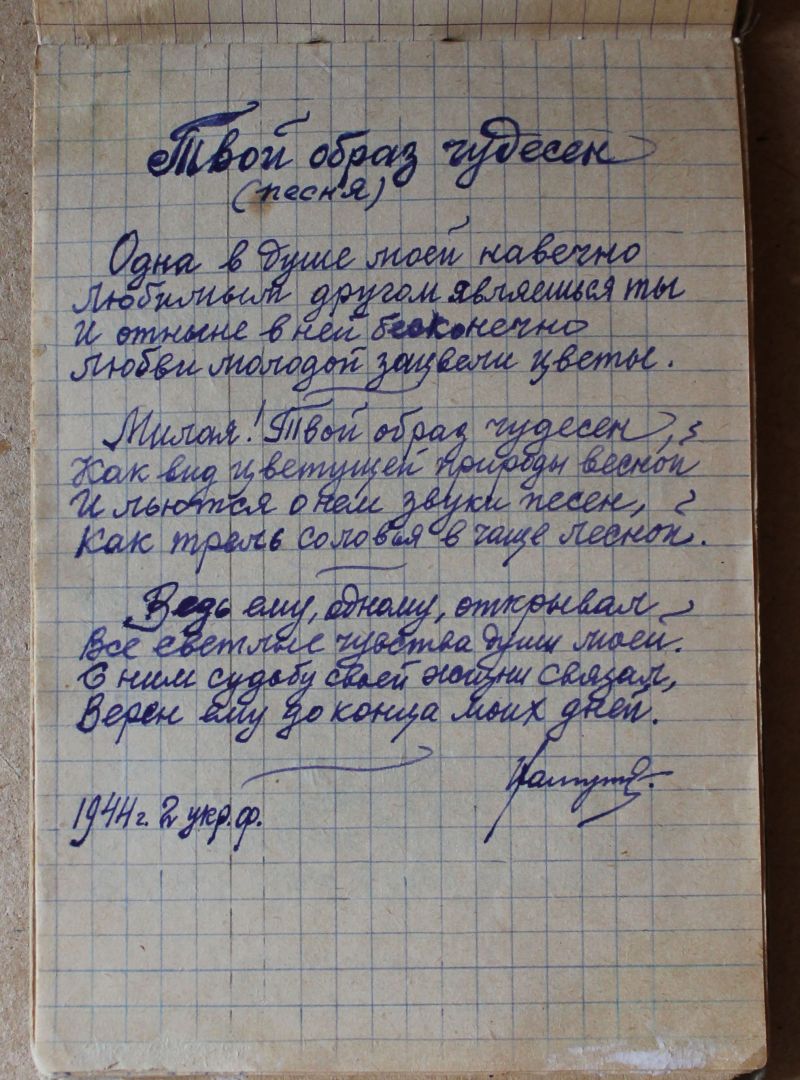 Твой образ чудесен
(песня)
Одна в душе моей навечно
Любимым другом являешься ты
И отныне в ней бесконечно
Любви молодой зацвели цветы.
Милая! Твой образ чудесен,
Как вид цветущей природы весной
И льются о нем звуки песен,
Как трель соловья в чаще лесной.
Ведь ему, одному, открывал
Все светлые чувства души моей.
С ним судьбу своей жизни связал,
Верен ему до конца моих дней.
1944 г. 2 укр. ф.